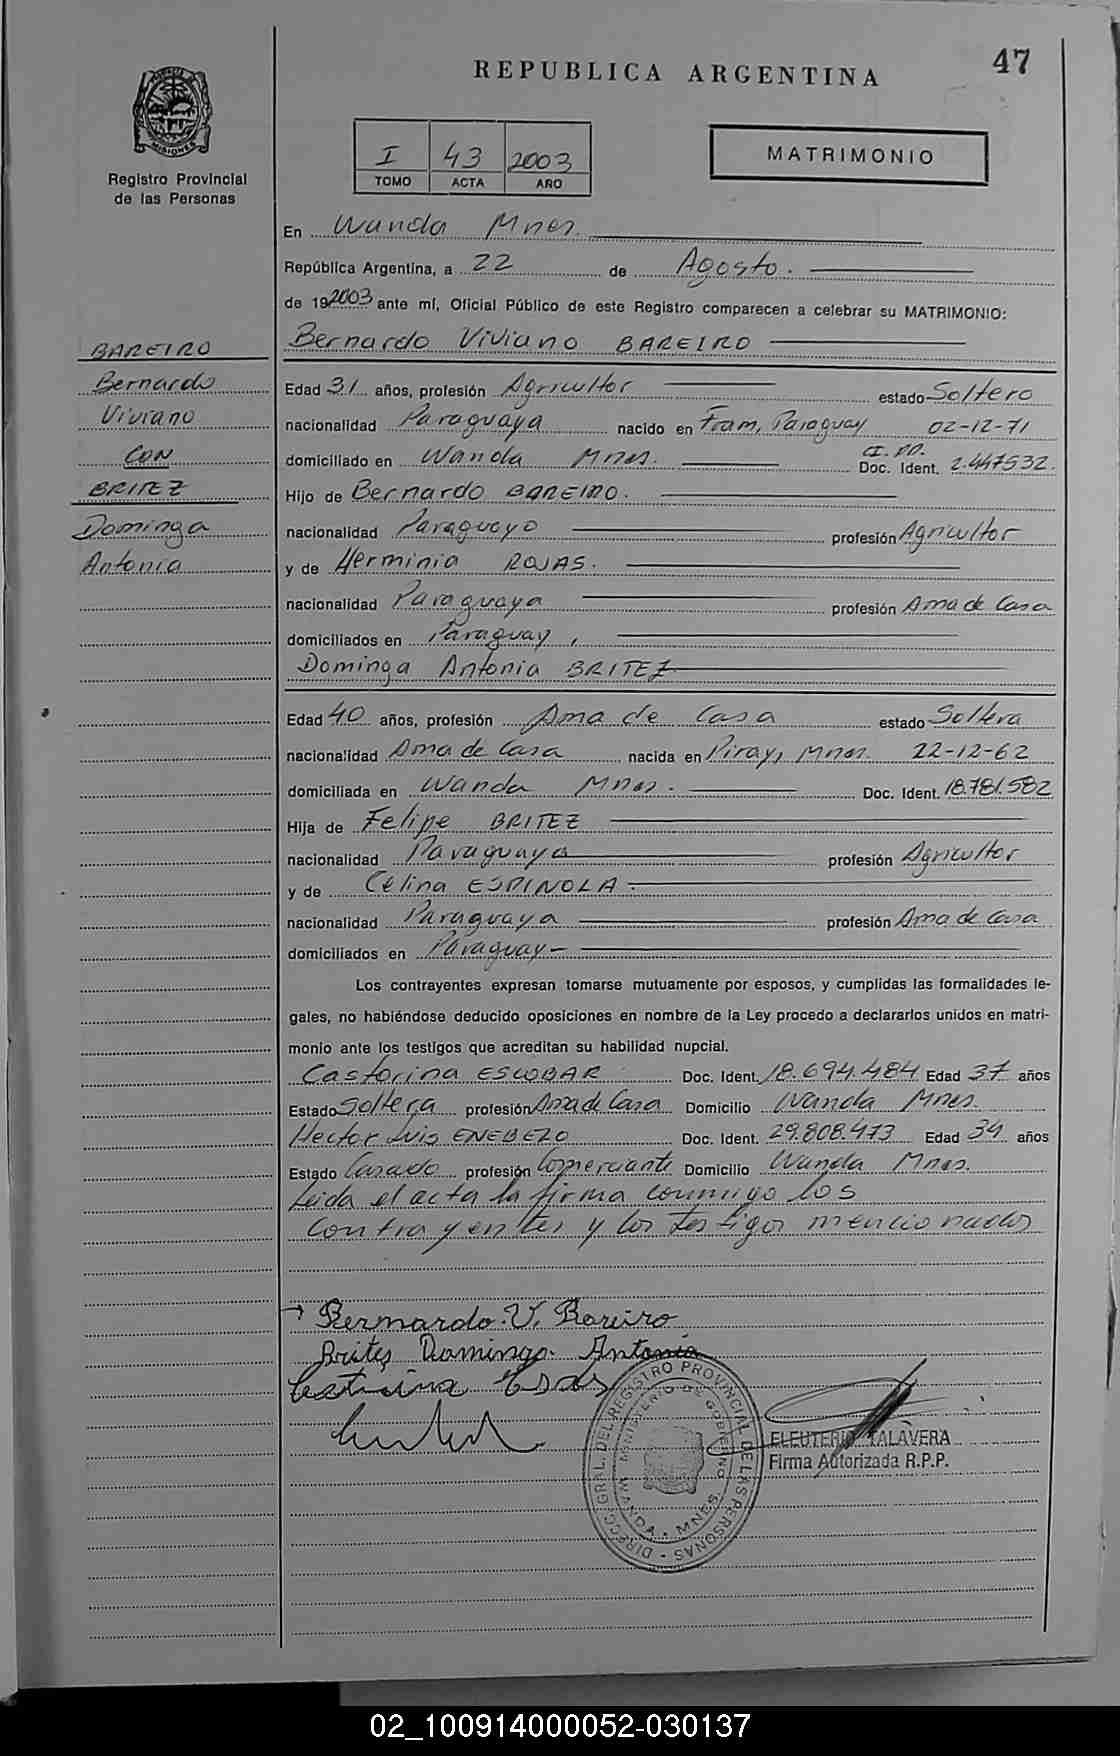 47
REPUBLICA ARGENTINA
PROVINCIA DE MISIONES
Registro Provincial
de las Personas
I 43 2003
TOMO ACTA AÑO
MATRIMONIO
En Wanda Mnes.
República Argentina, a 22 de Agosto.
de 192003 ante mí, Oficial Público de este Registro comparecen a celebrar su MATRIMONIO:
Bernardo Viviano BAREIRO
BAREIRO
Bernardo
Viviano
CON
BRITEZ
Dominga
Antonia
Edad 31 años, profesión Agricultor estado Soltero
nacionalidad Paraguaya nacido en Fram, Paraguay 02-12-71
domiciliado en Wanda Mnes. Doc. Ident. CI. PP. 2.447532.
Hijo de Bernardo BAREIRO.
nacionalidad Paraguayo profesión Agricultor
y de Herminia ROJAS.
nacionalidad Paraguaya profesión Ama de Casa
domiciliados en Paraguay,
Dominga Antonia BRITEZ
Edad 40 años, profesión Ama de Casa estado Soltera
nacionalidad Ama de Casa nacida en Piray, Mnes. 22-12-62
domiciliada en Wanda Mnes. Doc. Ident. 18.781.582
Hija de Felipe BRITEZ
nacionalidad Paraguaya profesión Agricultor
y de Celina ESPINOLA.
nacionalidad Paraguaya profesión Ama de Casa
domiciliados en Paraguay-
Los contrayentes expresan tomarse mutuamente por esposos, y cumplidas las formalidades le-
gales, no habiéndose deducido oposiciones en nombre de la Ley procedo a declararlos unidos en matri-
monio ante los testigos que acreditan su habilidad nupcial.
Castorina ESCOBAR Doc. Ident. 18.694.484 Edad 37 años
Estado Soltera profesión Ama de Casa Domicilio Wanda Mnes.
Hector Luis ENEBELO Doc. Ident. 29.808.473 Edad 34 años
Estado Casado profesión Comerciante Domicilio Wanda Mnes.
Leida el acta la firma conmigo los
contrayentes y los testigos mencionados
Bernardo V. Bareiro
Brites Dominga Antonia
DIRECC. GRAL. DEL REGISTRO PROVINCIAL DE LAS PERSONAS
MINISTERIO DE GOBIERNO
WANDA - MNES.
ELEUTERIO TALAVERA
Firma Autorizada R.P.P.
02_100914000052-030137